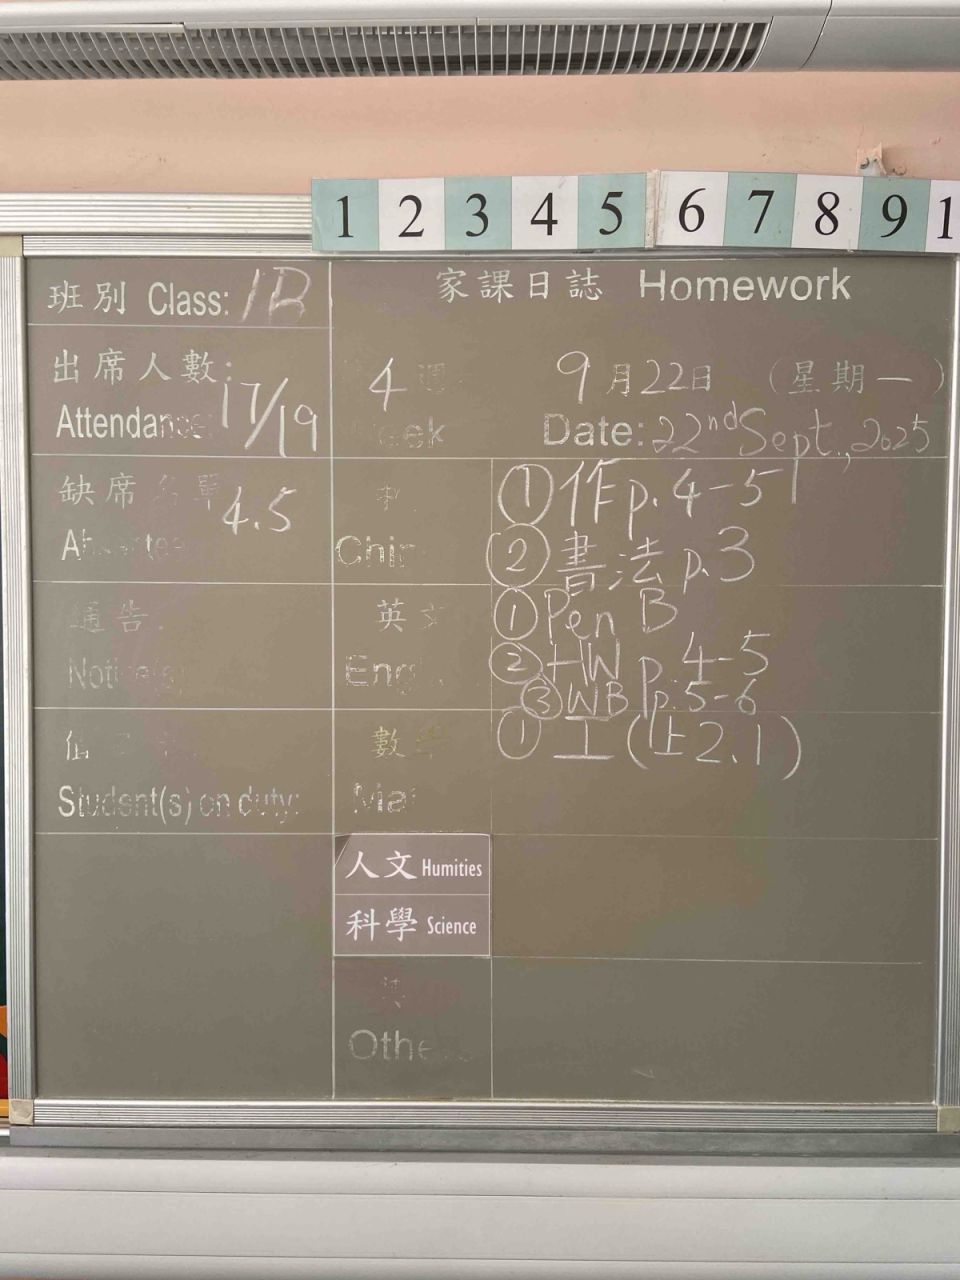 1 2 3 4 5 6 7 8 9 1
班別 Class: 1B
家課日誌 Homework
出席人數:
Attendance: 17/19
4 週
Week
9月22日 (星期一)
Date: 22nd Sept., 2025
缺席名單
4.5
Chin
① 作 p. 4-5
② 書法 p. 3
通告:
英文
Eng
① Pen B
② HW p. 4-5
③ WB p. 5-6
Student(s) on duty:
數
Mat
① 工(上2.1)
人文 Humities
科學 Science
Othe